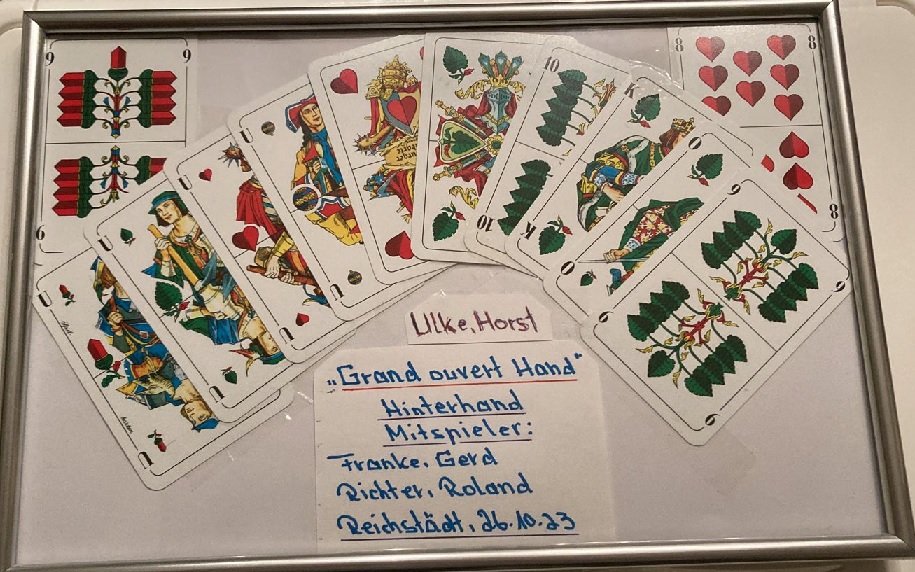 Ulke, Horst
„Grand ouvert Hand"
Hinterhand
Mitspieler:
Franke, Gerd
Richter, Roland
Reichstädt, 26.10.23